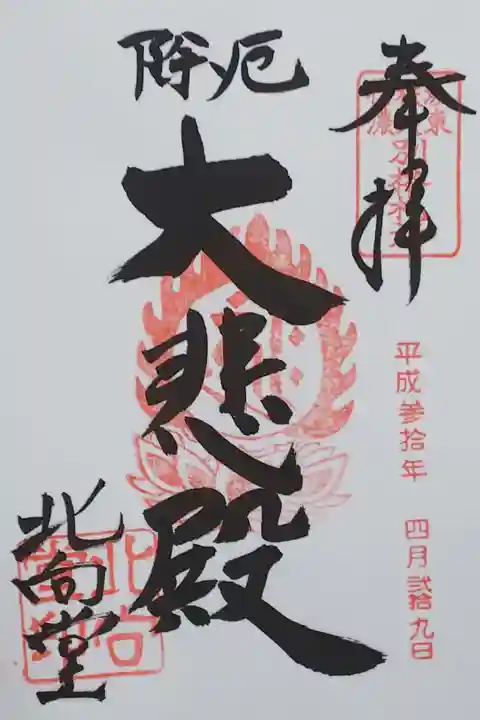 奉拝
平成参拾年 四月弐拾九日
厄除
大悲殿
北向堂